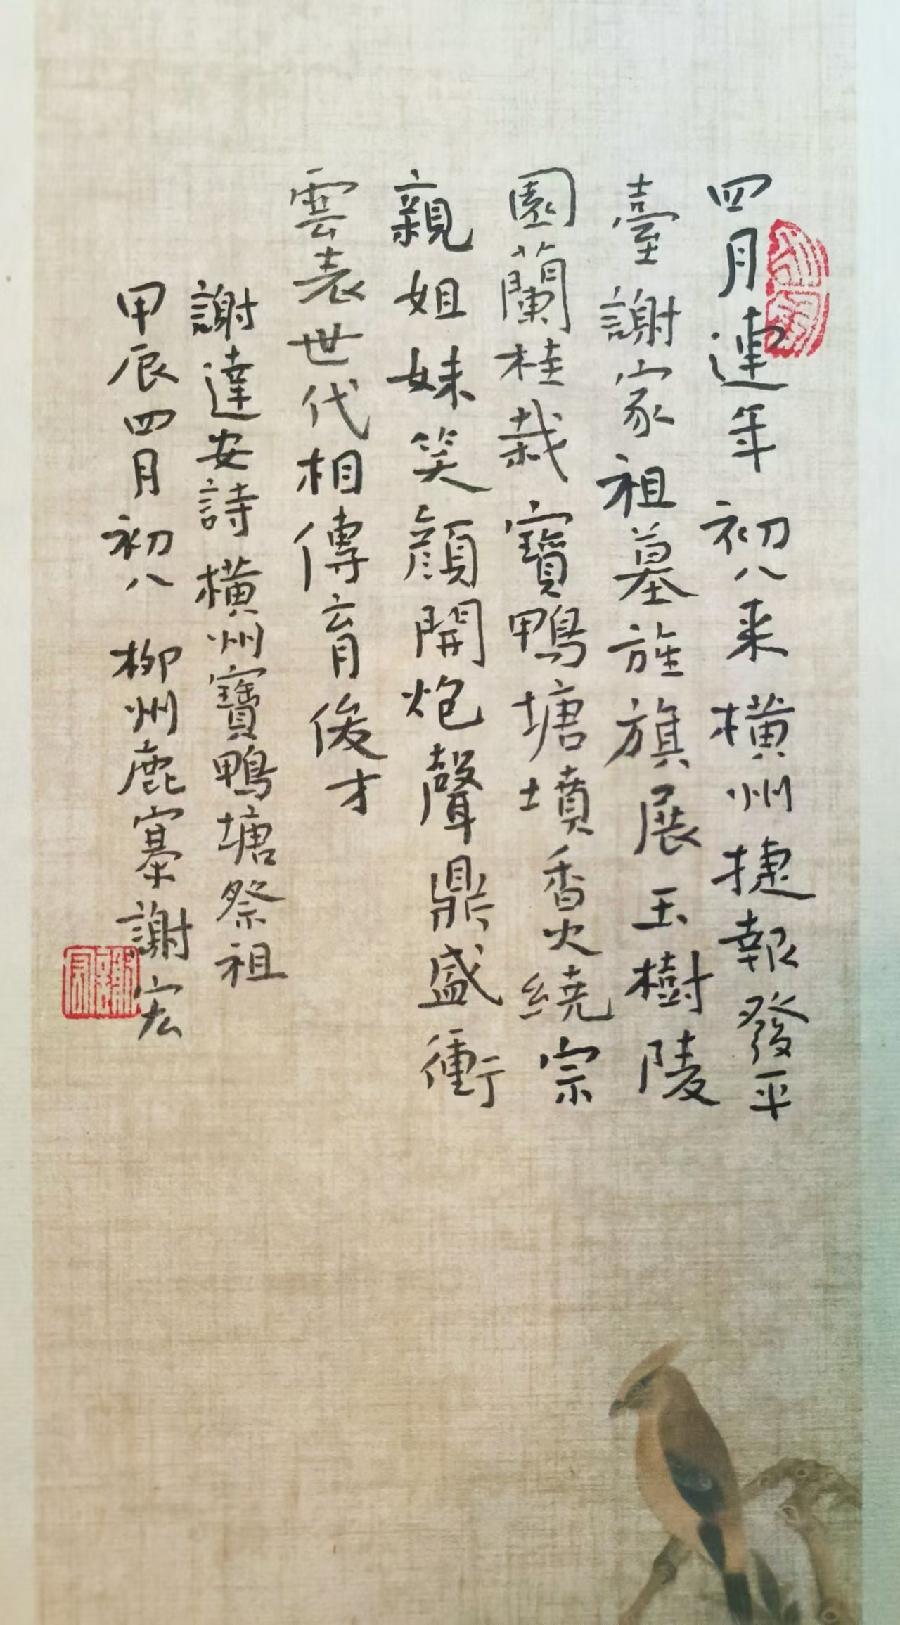 四月連年初八来橫州捷報發平
臺謝家祖墓旌旗展玉樹陵
園蘭桂栽寶鴨塘墳香火繞宗
親姐妹笑顔開炮聲鼎盛衝
雲表世代相傳育俊才
謝達安詩橫州寶鴨塘祭祖
甲辰四月初八柳州鹿寨謝宏